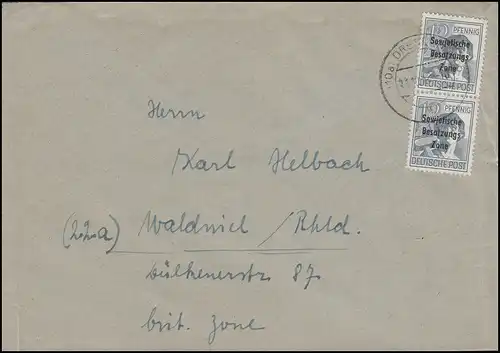 12 PFENNIG
Sowjetische
Besatzungs
Zone
DEUTSCHE POST
PFENNIG
Sowjetische
Besatzungs
Zone
DEUTSCHE POST
(10a) DRES
Herrn
Karl Helbach
(22a) Waldniel / Rhld.
Dülkenerstr 87
brit. Zone